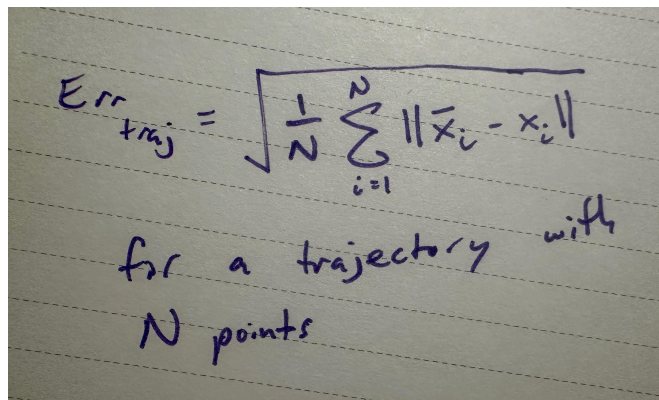 Err_traj = √(1/N ∑_{i=1}^{N} ||x̄_i - x_i||)
for a trajectory with
N points